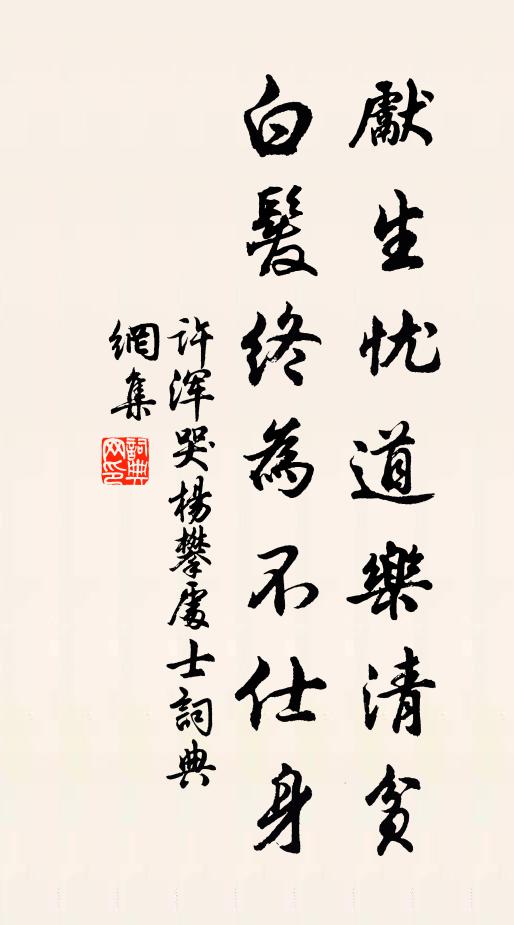 獻生忧道樂清貧
白髮終為不仕身
许渾哭楊攀處士詞典
網集
詞典網印